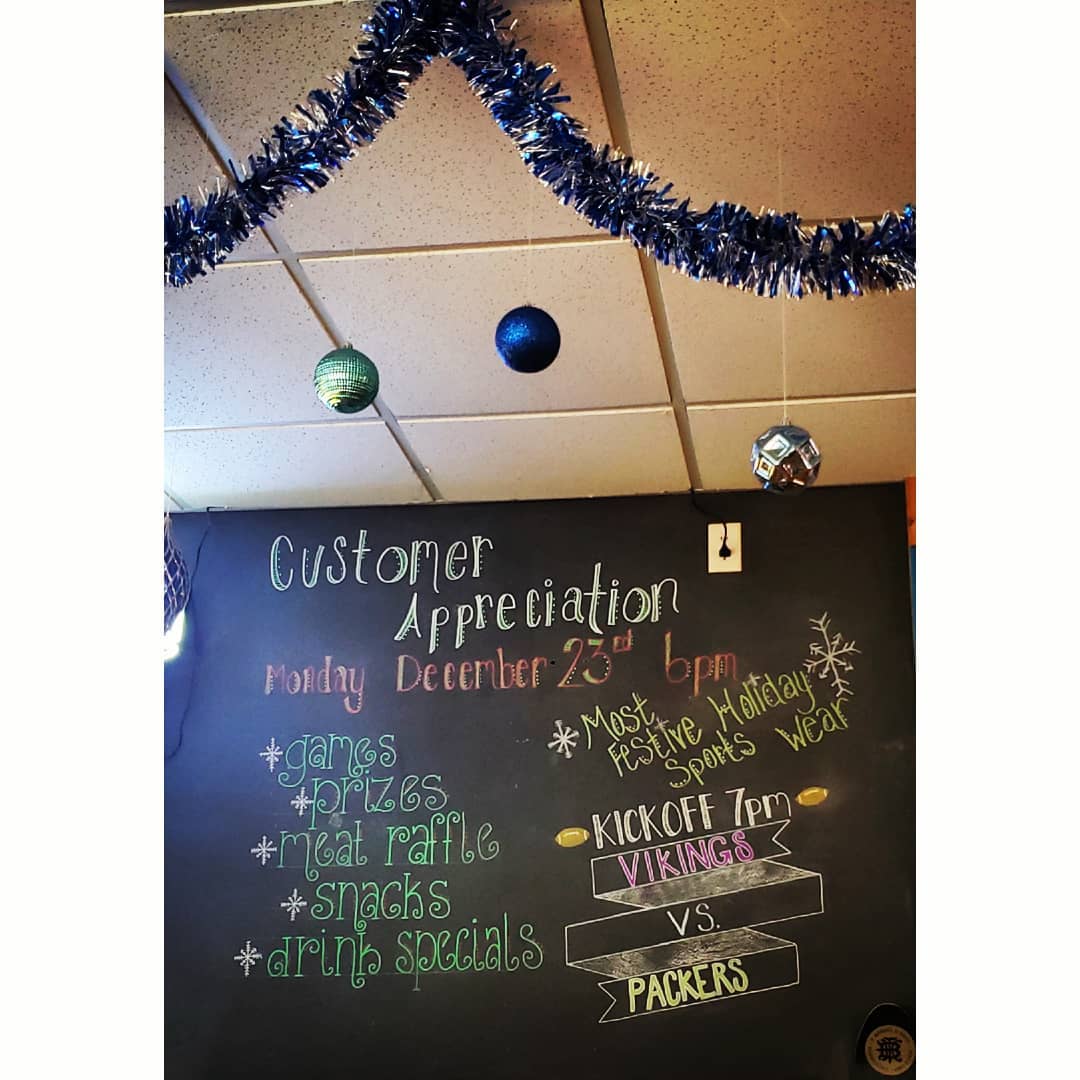 Customer
Appreciation
Monday December 23rd 6pm
games
prizes
meat raffle
snacks
drink specials
Most
Festive Holiday
Sports Wear
KICKOFF 7pm
VIKINGS
VS.
PACKERS